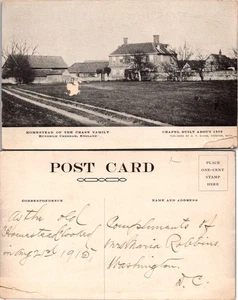 HOMESTEAD OF THE CHASE FAMILY
HUNDRICH CHESHAM, ENGLAND
CHAPEL BUILT ABOUT
POST CARD
PLACE
ONE-CENT
STAMP
HERE
CORRESPONDENCE
NAME AND ADDRESS
As the old
Homestead looked
in Aug 21st 1915
Compliments of
Mrs Maria Robbins
Washington.
D.C.